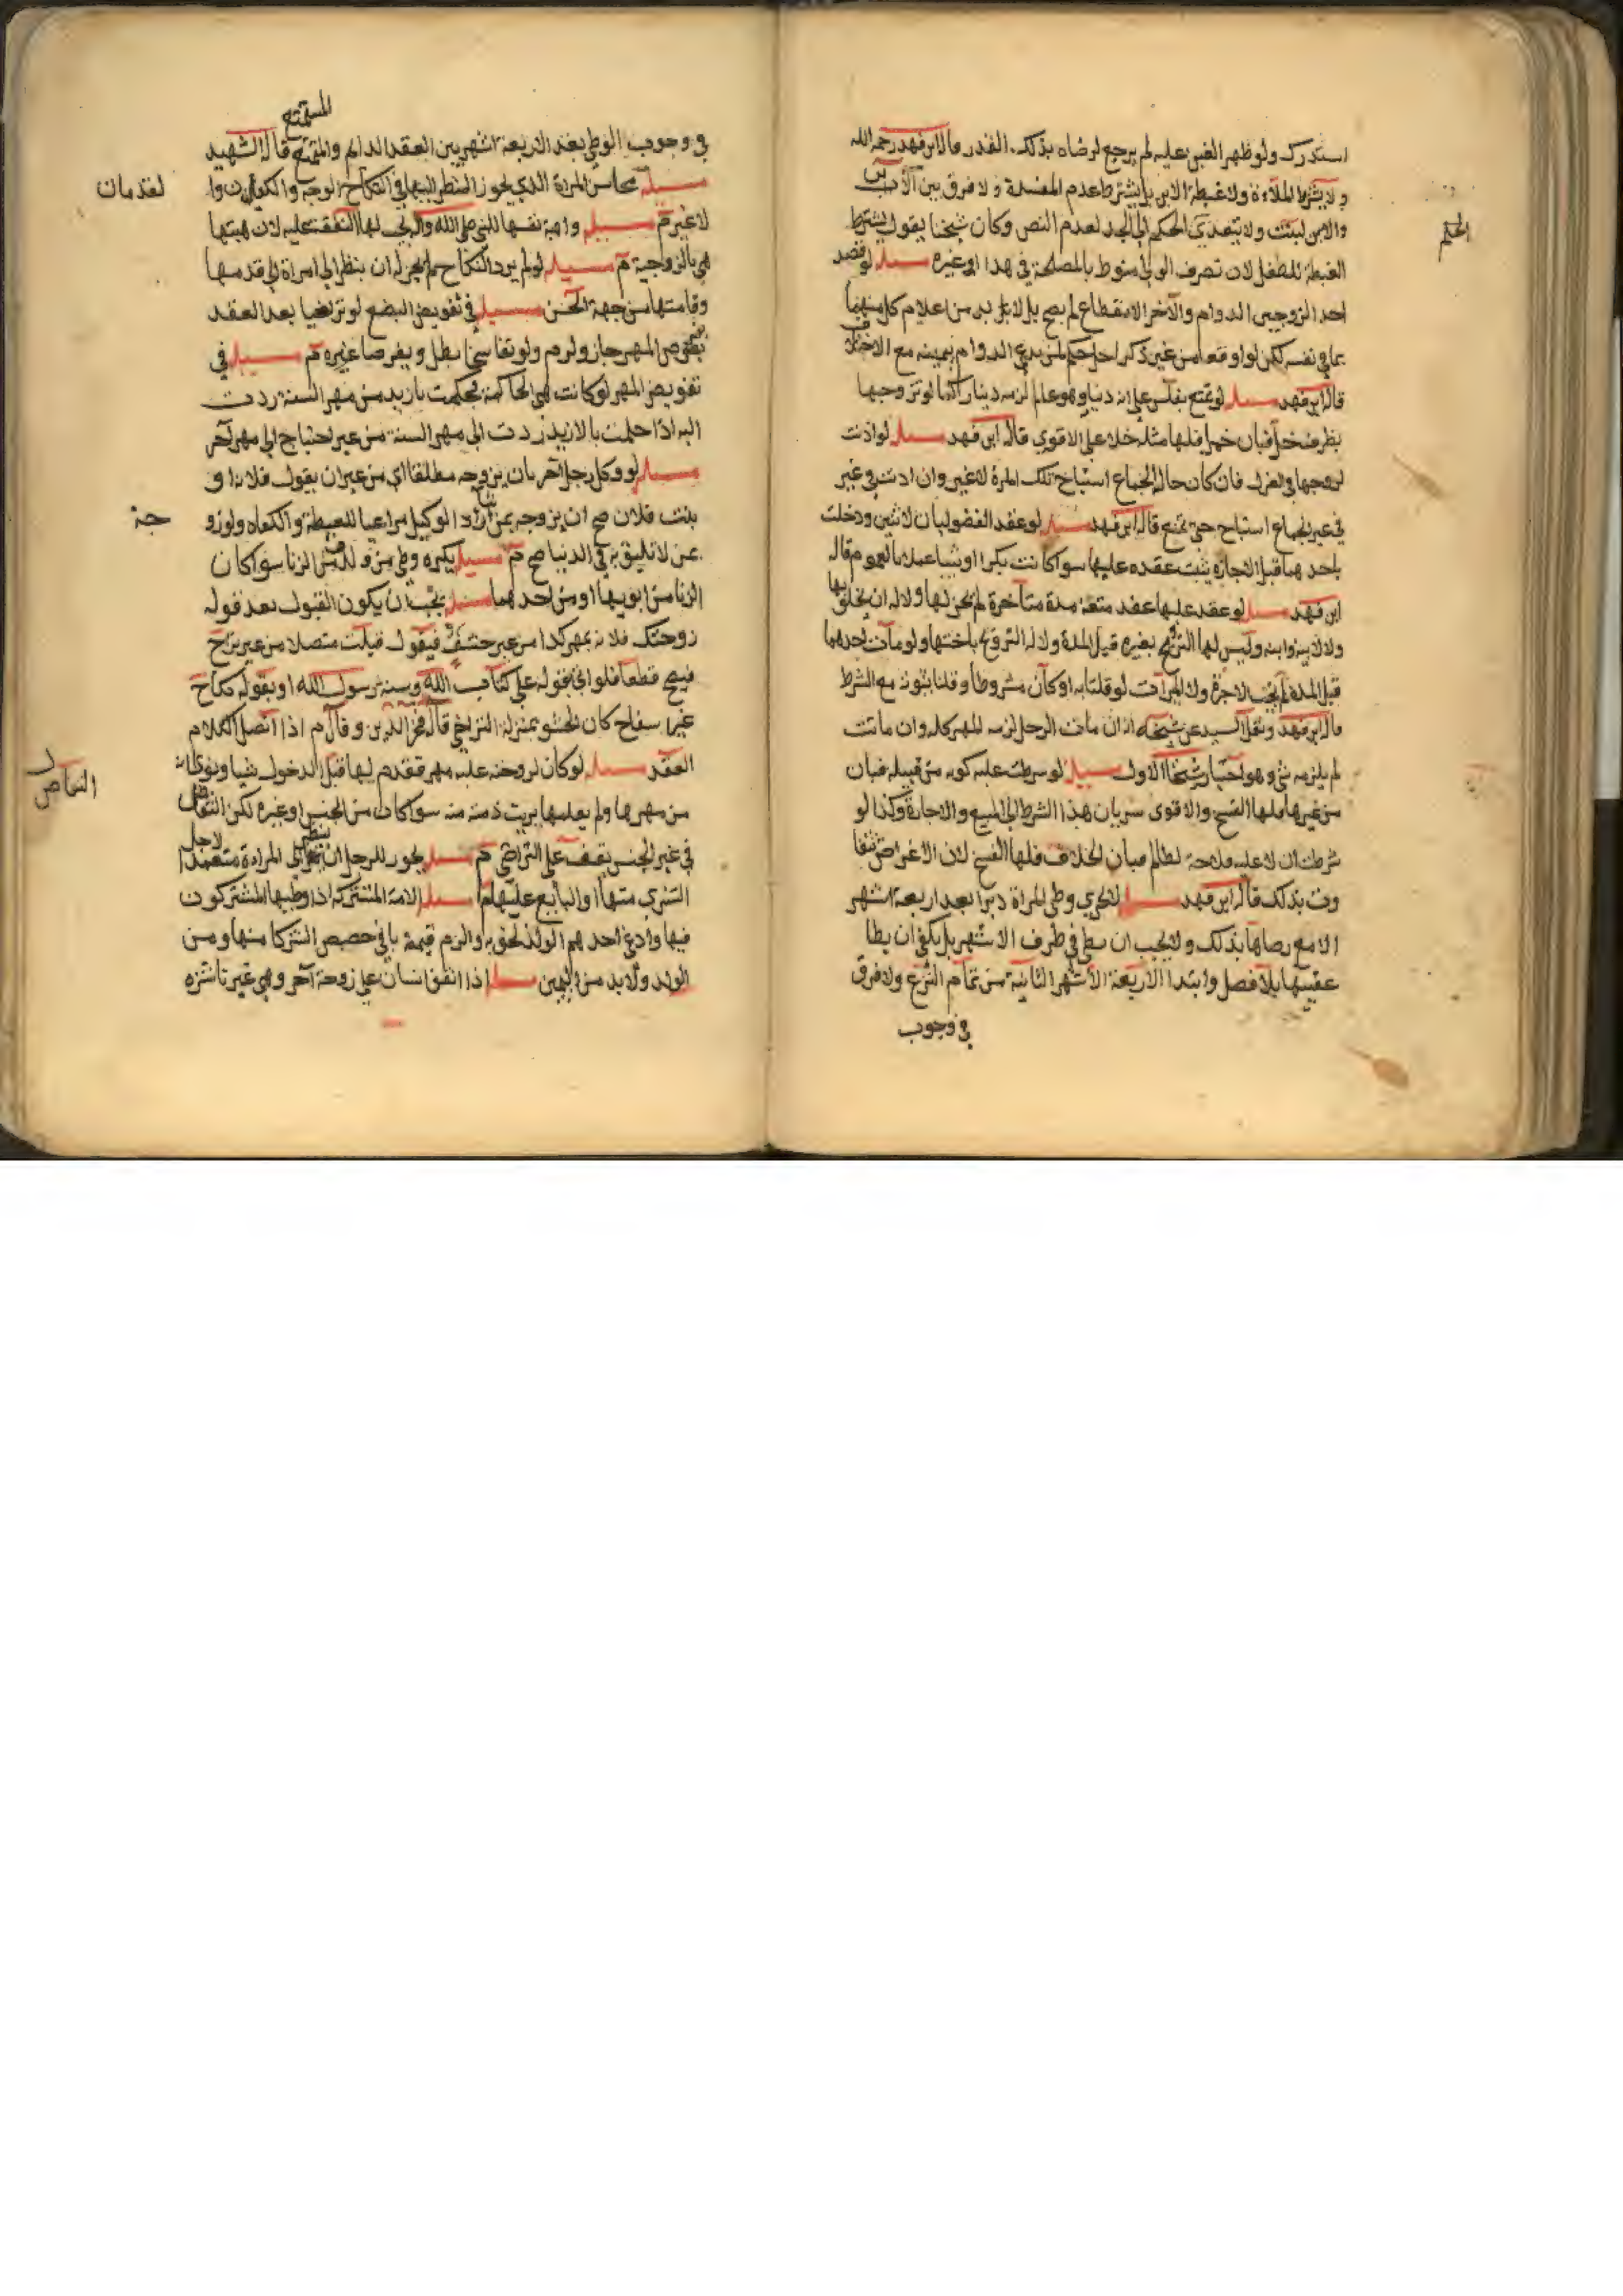 استدرك ولو ظهر الغبن عليه لم يرجع لرضاه بذلك القدر قال ابن فهد رحمه الله
ولا يشترط الملاءة ولا غبطة الابن بل يشترط عدم المفسدة ولا فرق بين الأب
والابن لبنت ولا يتعدى الحكم الى الجد لعدم النص وكان شيخنا يقول يشترط
الحكم
الغبطة للطفل لان تصرف الولي منوط بالمصلحة في هذا او غيره مسئلة لو قصد
احد الزوجين الدوام والآخر الانقطاع لم يصح بل لا بد من اعلام كل منهما
بما في نفسه لكن لو اوقعا من غير ذكر اجل حكم لمن يدعي الدوام بيمينه مع الاختلاف
قال ابن فهد مسئلة لو تمتع على انه دينار وهو عالم لزمه دينار اما لو تزوجها
بظرف خل فبان خمرا فلها مثله خلا على الاقوى قال ابن فهد مسئلة لو اذنت
لزوجها في العزل فان كان حال الجماع استباح تلك المرة لا غير وان اذنت في غير
في غير جماع استباح حتى تمنع قال ابن فهد مسئلة لو عقد الفضوليان لاثنين ودخلت
باحدهما قبل الاجازة يثبت عقده عليها سوا كانت بكرا او ثيبا عملا بالعموم قاله
ابن فهد مسئلة لو عقد عليها عقد متعة مدة متأخرة لم يجز لها ولا له ان
ولا لابيه وابنه وليس لها التزويج بغيره قبل المدة ولا له التزويج باختها ولو مات احدهما
قبل المدة لم يجب الاجرة ولا الميراث لو قلنا به او كان مشروطا وقلنا بثبوته مع الشرط
قال ابن فهد ونقل السيد عن شيخه انه ان مات الرجل لزمه المهر كله وان ماتت
لم يلزمه شي وهو اختيار شيخنا الاول مسئلة لو شرطت عليه كونه من قبيلة فبان
من غيرها فلها الفسخ والاقوى سريان هذا الشرط الى المبيع والاجارة وكذا لو
شرطت ان لا فلاحة لظالم فبان الخلاف فلها الفسخ لان الاغراض
وت بذلك قال ابن فهد مسئلة لا يجزي وطي المراة دبرا بعد اربعة اشهر
الا مع رضاها بذلك ولا يجب ان يطي في طرف الاشهر بل يكفي ان يطا
عقيبها بلا فصل وابتدا الاربعة الاشهر الثانية من تمام النزع ولا فرق
في وجوب
المستمتع
في وجوب الوطي بعد الاربعة اشهر بين العقد الدايم والمتمتع قال الشهيد
مسئلة محاسن المراة الذي يجوز النظر اليها في النكاح الوجه والكفان وا
لقدمان
لا غير م مسئلة واهبة نفسها للنبي صلى الله وآله يجب لها النفقة عليه لان هبتها
هي بالزوجية م مسئلة لو لم يرد النكاح لم يجز له ان ينظر الى امراة الى قدمها
وقامتها من جهة الحسن مسئلة في تفويض البضع لو تراضيا بعد العقد
بفرض المهر جاز ولزم ولو تفاسخا بطل ويفرضا غيره م مسئلة في
تفويض المهر لو كانت هي الحاكمة فحكمت بازيد من مهر السنة ردت
اليه اذا حكمت بالازيد ردت الى مهر السنة من غير احتياج الى مهر آخر
مسئلة لو وكل رجل آخر بان يزوجه مطلقا اي من غير ان يقول فلانة او
بنت فلان صح ان يزوجه بمن اراد الوكيل مراعيا للغبطة والكفاه ولو زو
جه
عن لا تليق به في الدنيا صح م مسئلة يكره وطي من ولد من الزنا سوا كان
الزنا من ابويها او من احدهما مسئلة يجب ان يكون القبول بعد قوله
زوجتك فلانة بمهر كذا من غير حشو فيقول قبلت متصلا من غير تراخ
فيصح قطعا فلو اتى بقوله على كتاب الله وسنة رسول الله او بقوله نكاح
غير سفاح كان الحشو بمنزلة التراخي قاله فخر الدين وقال م اذا اتصل الكلام
العقد مسئلة لو كان لزوجته عليه مهر فقدم لها قبل الدخول شيا ونوى انه
من مهرها ولم يعلمها بريت ذمته منه سوا كان من الجنس او غيره لكن
التقاص
في غير الجنس يقف على التراضي م مسئلة يجوز للرجل ان ينظر الى المراة متعمدا لاجل
الشرى منها او البايع عليها م مسئلة الامة المشتركة اذا وطيها المشتركون
فيها وادعى احدهم الولد لحق به والزم قيمة باقي حصص الشركا منها ومن
الولد ولا بد من اليمين مسئلة اذا انفق انسان على زوجة آخر وهي غير ناشزه